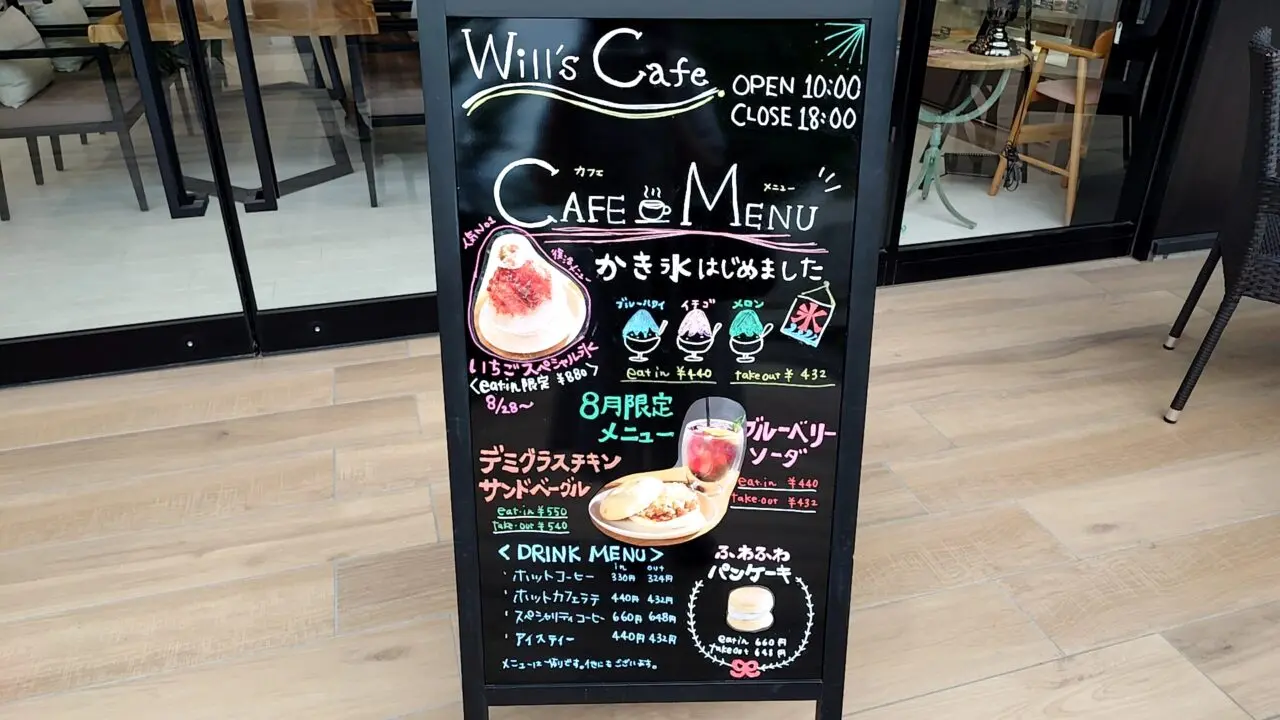 Will's Cafe
OPEN 10:00
CLOSE 18:00
カフェ メニュー
CAFE MENU
人気No1
復活メニュー
かき氷はじめました
ブルーハワイ イチゴ メロン
氷
eat in ¥440 take out ¥432
いちごスペシャル氷
<eat in 限定 ¥880>
8/28〜
8月限定
メニュー
ブルーベリー
ソーダ
eat.in ¥440
take.out ¥432
デミグラスチキン
サンドベーグル
eat.in ¥550
take.out ¥540
<DRINK MENU>
in out
・ホットコーヒー 330円 324円
・ホットカフェラテ 440円 432円
・スペシャリティコーヒー 660円 648円
・アイスティー 440円 432円
メニューは一部です。他にもございます。
ふわふわ
パンケーキ
eat in 660円
take out 648円